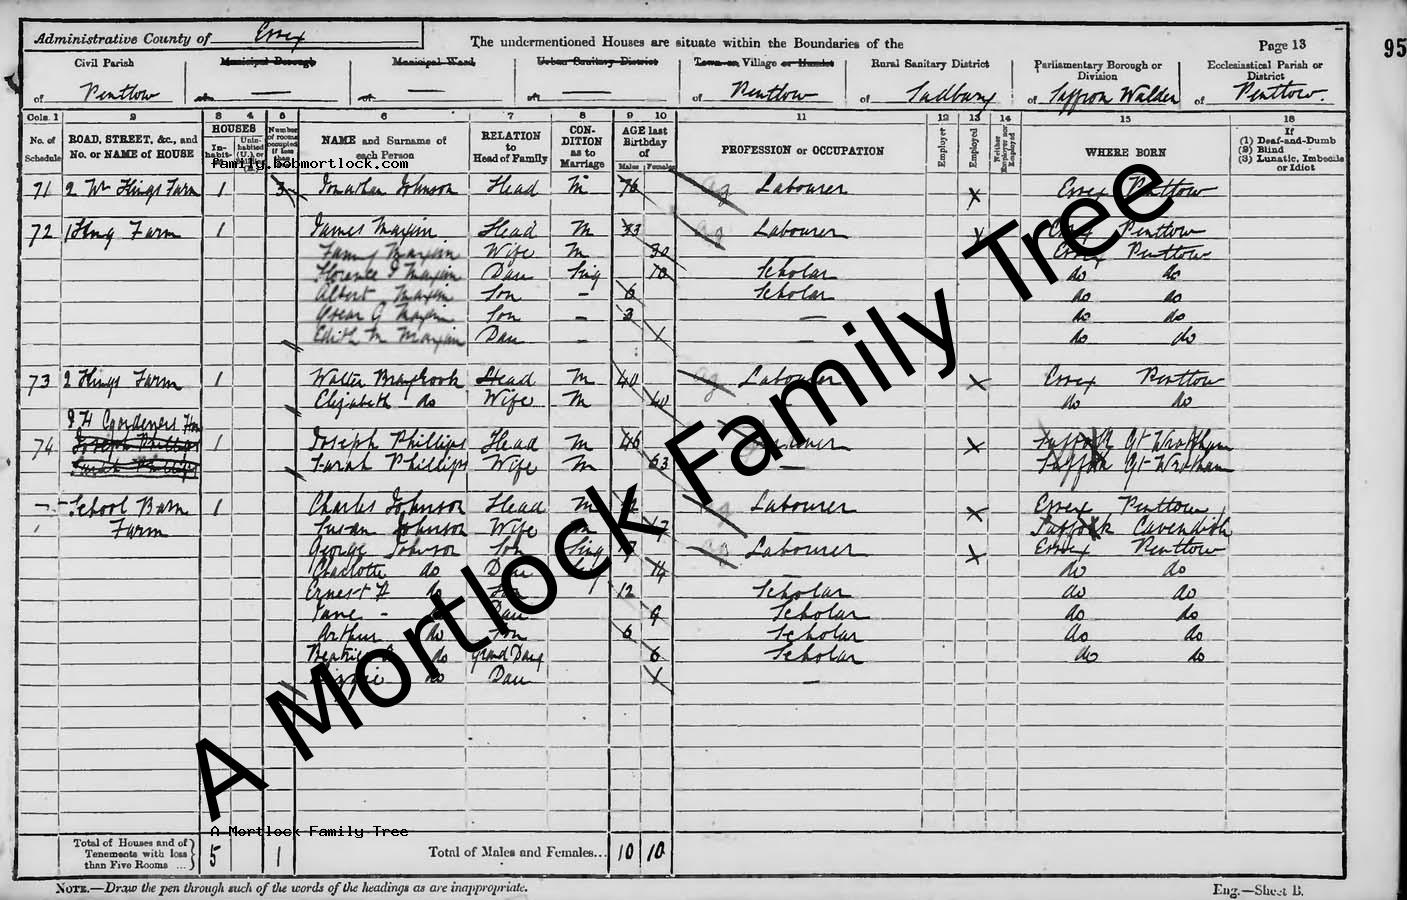 Administrative County of Essex
The undermentioned Houses are situate within the Boundaries of the
Page 13
95
Civil Parish
of Pentlow
Municipal Borough
of —
Municipal Ward
of —
Urban Sanitary District
of —
Town or Village or Hamlet
of Pentlow
Rural Sanitary District
of Sudbury
Parliamentary Borough or Division
of Saffron Walden
Ecclesiastical Parish or District
of Pentlow.
Cols. 1 2 3 4 5 6 7 8 9 10 11 12 13 14 15 16
No. of Schedule
ROAD, STREET, &c., and No. or NAME of HOUSE
HOUSES
In-habit-
Unin-habited (U.), or
Number of rooms occupied if less
NAME and Surname of each Person
RELATION to Head of Family
CON-DITION as to Marriage
AGE last Birthday of
Males Females
PROFESSION or OCCUPATION
Employer
Employed
Neither Employer nor Employed
WHERE BORN
If (1) Deaf-and-Dumb (2) Blind (3) Lunatic, Imbecile or Idiot
family.bobmortlock.com
71 2 Kings Farm 1 3 Jonathan Johnson Head M 76 Ag Labourer X Essex Pentlow
72 1 King Farm 1 James Maxim Head M 33 Ag Labourer X Essex Pentlow
Fanny Maxim Wife M 30 Essex Pentlow
Florence I Maxim Dau Sing 10 Scholar do do
Albert Maxim Son — 6 Scholar do do
Oscar G Maxim Son — 3 — do do
Edith M Maxim Dau — 1 — do do
73 2 Kings Farm 1 Walter Braybrook Head M 40 Ag Labourer X Essex Pentlow
Elizabeth do Wife M 40 do do
Gardeners
74 Joseph Phillips 1 Joseph Phillips Head M 46 X Suffolk Gt Wratham
Sarah Phillips Sarah Phillips Wife M 63 — Suffolk Gt Wratham
School Barn 1 Charles Johnson Head M Ag Labourer X Essex Pentlow
Farm Susan Johnson Wife 47 — Suffolk Cavendish
George Johnson Son Sing Ag Labourer X Essex Pentlow
Charlotte do Dau 14 — do do
Ernest H do Son 12 Scholar do do
Jane Dau 9 Scholar do do
Arthur do Son 6 Scholar do do
Beatrice do Grand Daug 6 Scholar do do
do Dau 1 —
A Mortlock Family Tree
A Mortlock Family Tree
Total of Houses and of Tenements with less than Five Rooms ... 5 1
Total of Males and Females... 10 10
NOTE.—Draw the pen through such of the words of the headings as are inappropriate.
Eng.—Sheet B.